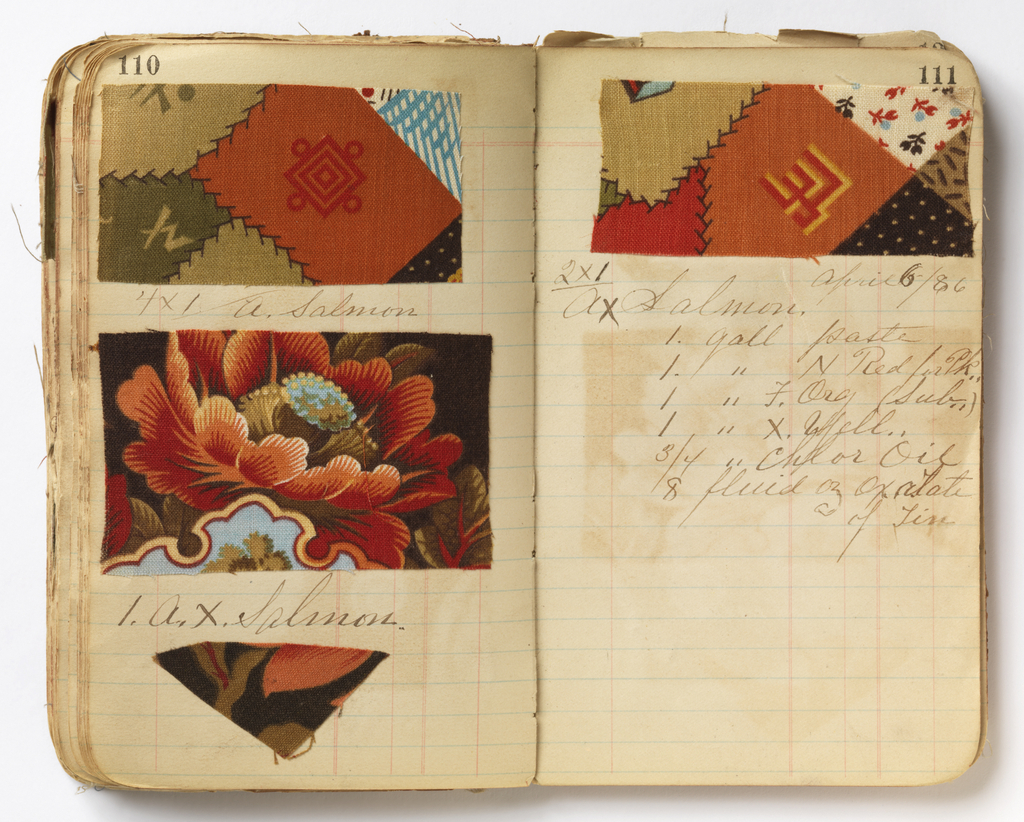 110
4x1 a. Salmon
1. a. x. Salmon.
111
2x1 april 6/86
ax Salmon.
1. gall paste
1. " N Red
1 " F. Org (Sub.)
1 " X. Yell..
3/4 " Chlor Oil
8 fluid oz Oxalate
of Tin